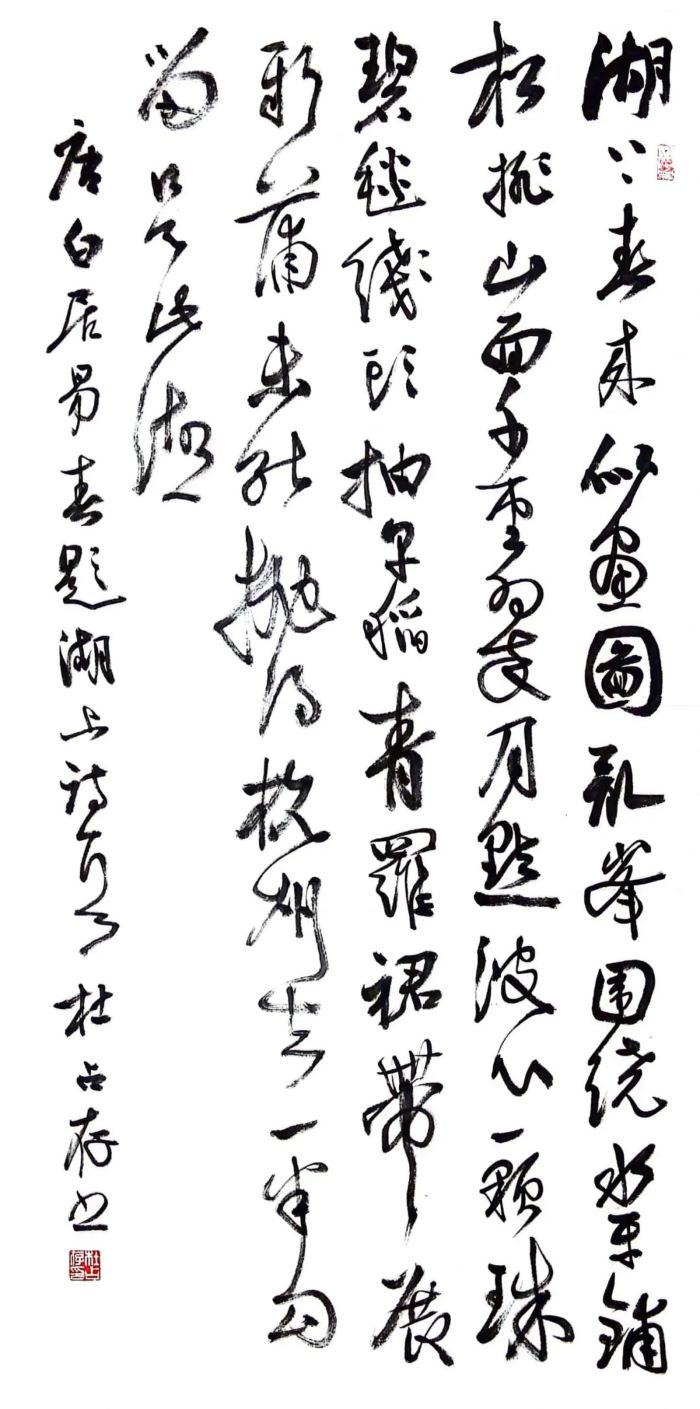 湖上春来似畫圖乱峯围绕水平鋪
松排山面千重翠月點波心一顆珠
碧毯綫头抽早稻青羅裙帶展
新蒲未能抛得杭州去一半勾
留是此湖
唐白居易春题湖上诗一首杜占存书
杜占存印